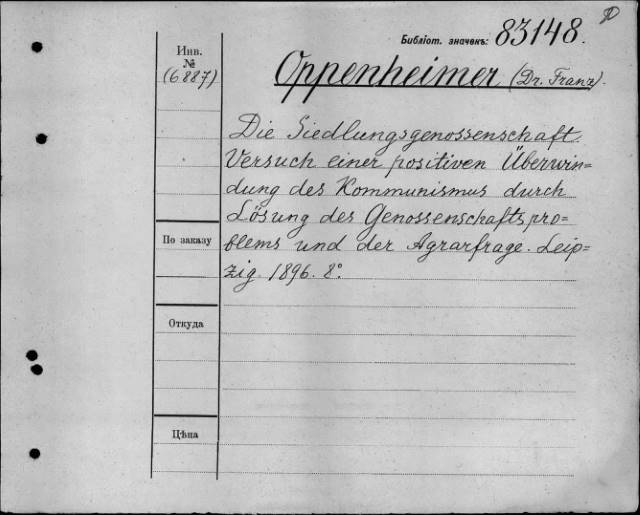 Библіот. значекъ: 83148.
Инв.
№
(6887)
Oppenheimer (Dr. Franz).
Die Siedlungsgenossenschaft.
Versuch einer positiven Überwin=
dung des Kommunismus durch
Lösung des Genossenschaftspro=
blems und der Agrarfrage. Leip=
zig. 1896. 8°.
По заказу
Откуда
Цѣна